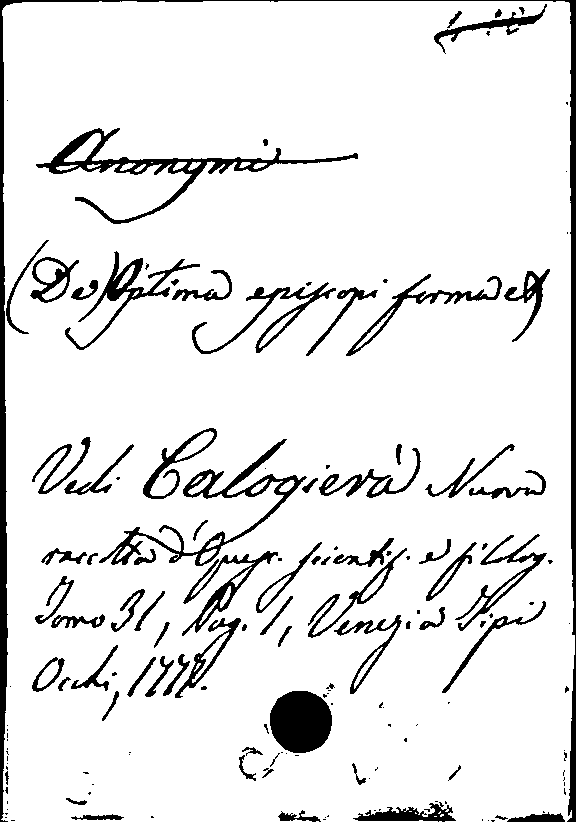 Anonymi
(De) Optima episcopi forma etc)
Vedi Calogierà Nuova
raccolta d'Opusc. scientif. e filolog.
Tomo 31, Pag. 1, Venezia Tipi
Occhi, 1777.